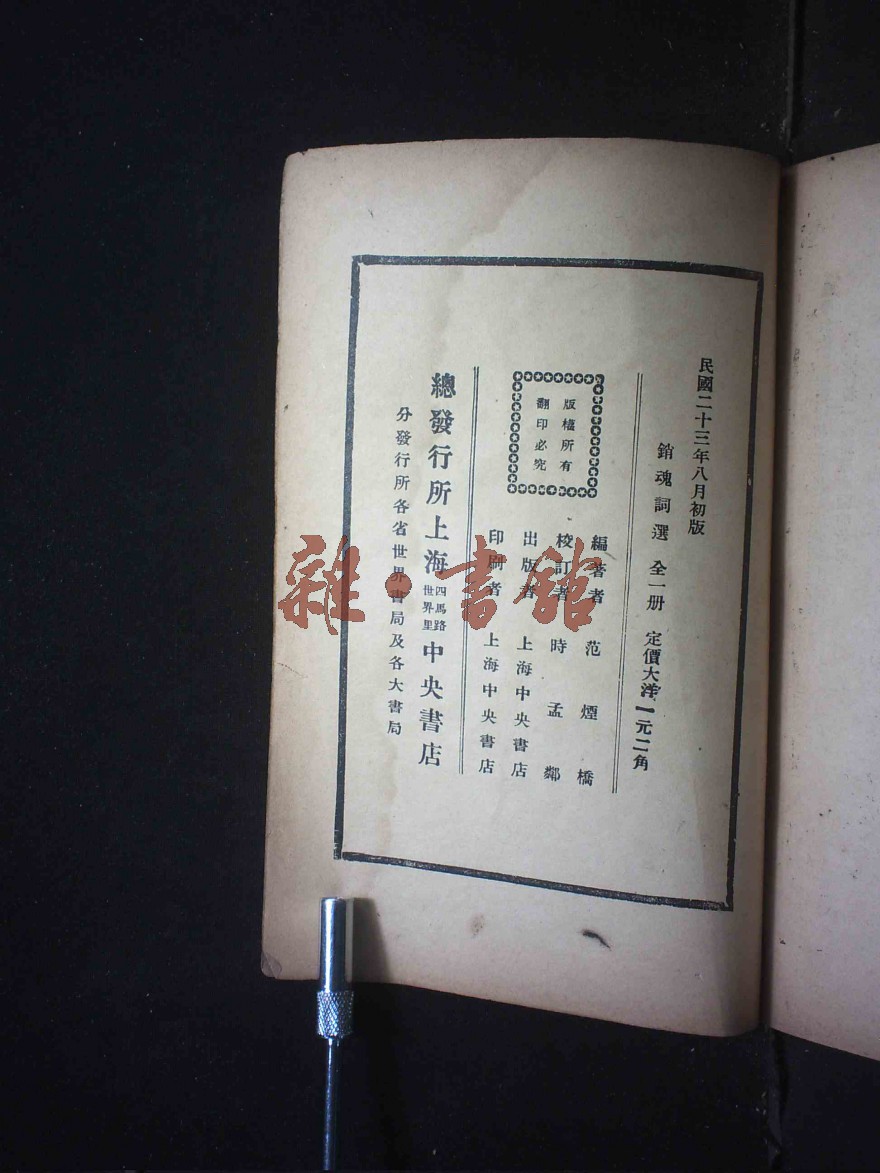 民國二十三年八月初版
銷魂詞選 全一册 定價大洋一元二角
版權所有
翻印必究
編著者 范煙橋
校訂者 時孟鄰
出版者 上海中央書店
印刷者 上海中央書店
總發行所上海四馬路世界里中央書店
分發行所各省世界書局及各大書局
雜·書館